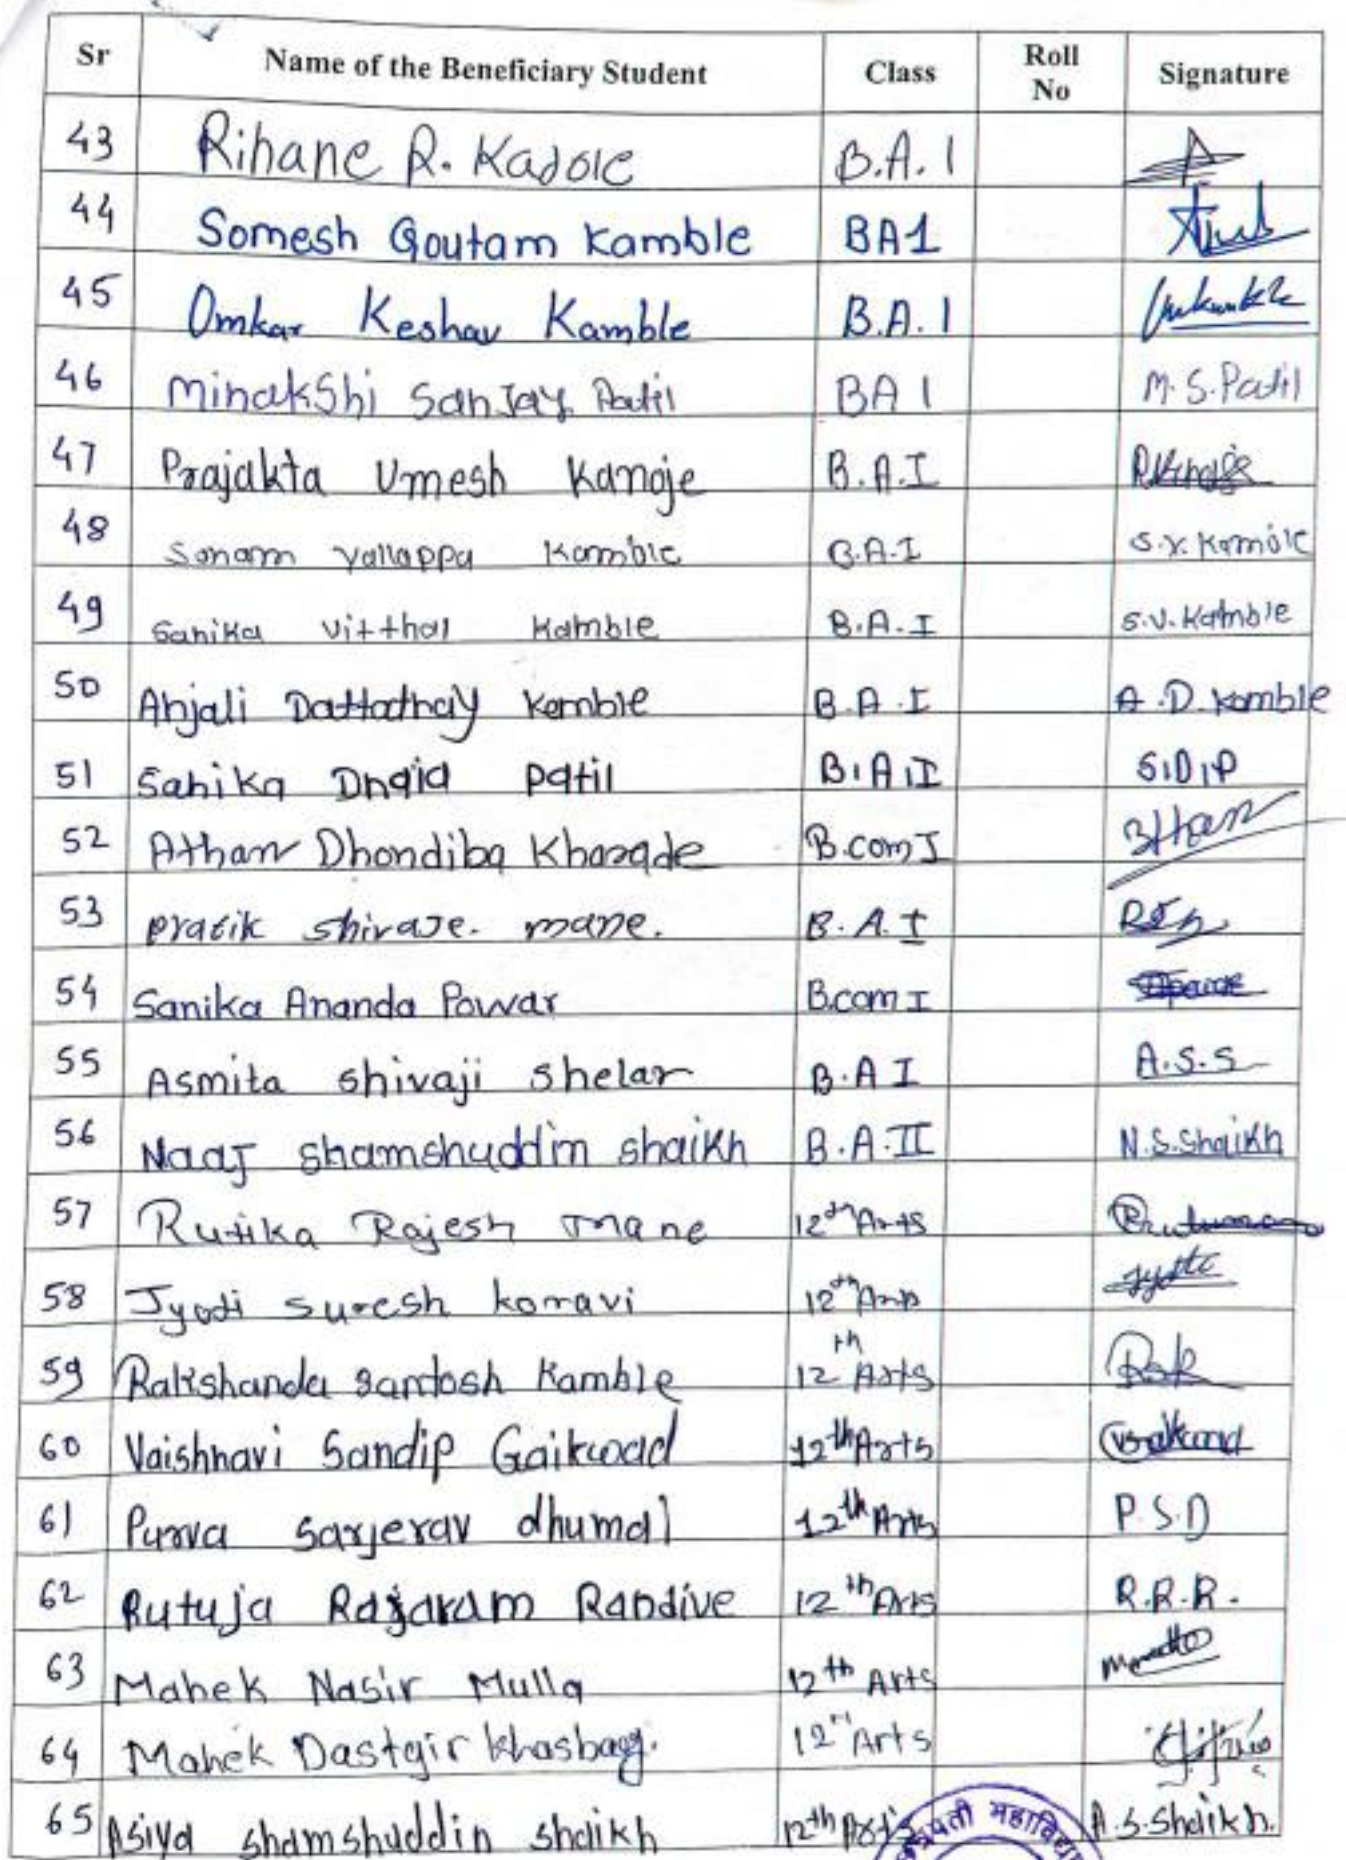 Sr Name of the Beneficiary Student Class Roll No Signature
43 Rihane R. Kadole B.A. I
44 Somesh Goutam Kamble BA1
45 Omkar Keshav Kamble B.A. I
46 Minakshi Sanjay Patil BA I M.S.Patil
47 Prajakta Umesh Kanoje B.A.I
48 Sonam Yallappa Kamble B.A.I S.Y. Kamble
49 Sanika Vitthal Kamble B.A.I S.V. Kamble
50 Anjali Dattatray Kamble B.A.I A.D. Kamble
51 Sanika patil B.A.I S.D.P
52 Dhondiba Kharade B.com I
53 pratik mane. B.A.I
54 Sanika Ananda Powar B.com I
55 Asmita shivaji shelar B.A I A.S.S
56 Naaj shamshuddin shaikh B.A.II N.S.Shaikh
57 Rutika Rajesh mane 12th Arts
58 Jyoti suresh koravi 12th Arts
59 Rakshanda santosh Kamble 12th Arts
60 Vaishnavi Sandip Gaikwad 12th Arts
61 Purva sarjerav dhumal 12th Arts P.S.D
62 Rutuja Rajaram Randive 12th Arts R.R.R.
63 Mahek Nasir Mulla 12th Arts
64 Mahek Dastgir khasbag. 12th Arts
65 Asiya shamshuddin shaikh 12th Arts A.S.Shaikh.